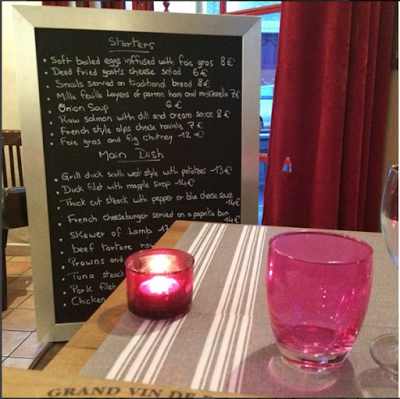 Starters
• Soft boiled eggs infused with foie gras 8€
• Deed fried goat's cheese salad 6€
• Snails served on traditional bread 8€
• Mille feuille Layers of parma ham and mozzarella 7€
• Onion Soup 6€
• Raw salmon with dill and cream sauce 8€
• French style alps cheese 7€
• Foie gras and fig chutney 12€
Main Dish
• Grill duck south west style with potatoes 13€
• Duck filet with mapple sirop 14€
• Thick cut steack with pepper or blue cheese sauce 14€
• French cheeseburger served on a paprika bun 14€
• Skewer of Lamb
• beef tartare
• Prawns and
• Tuna steack
• Pork filet
• Chicken
GRAND VIN DE